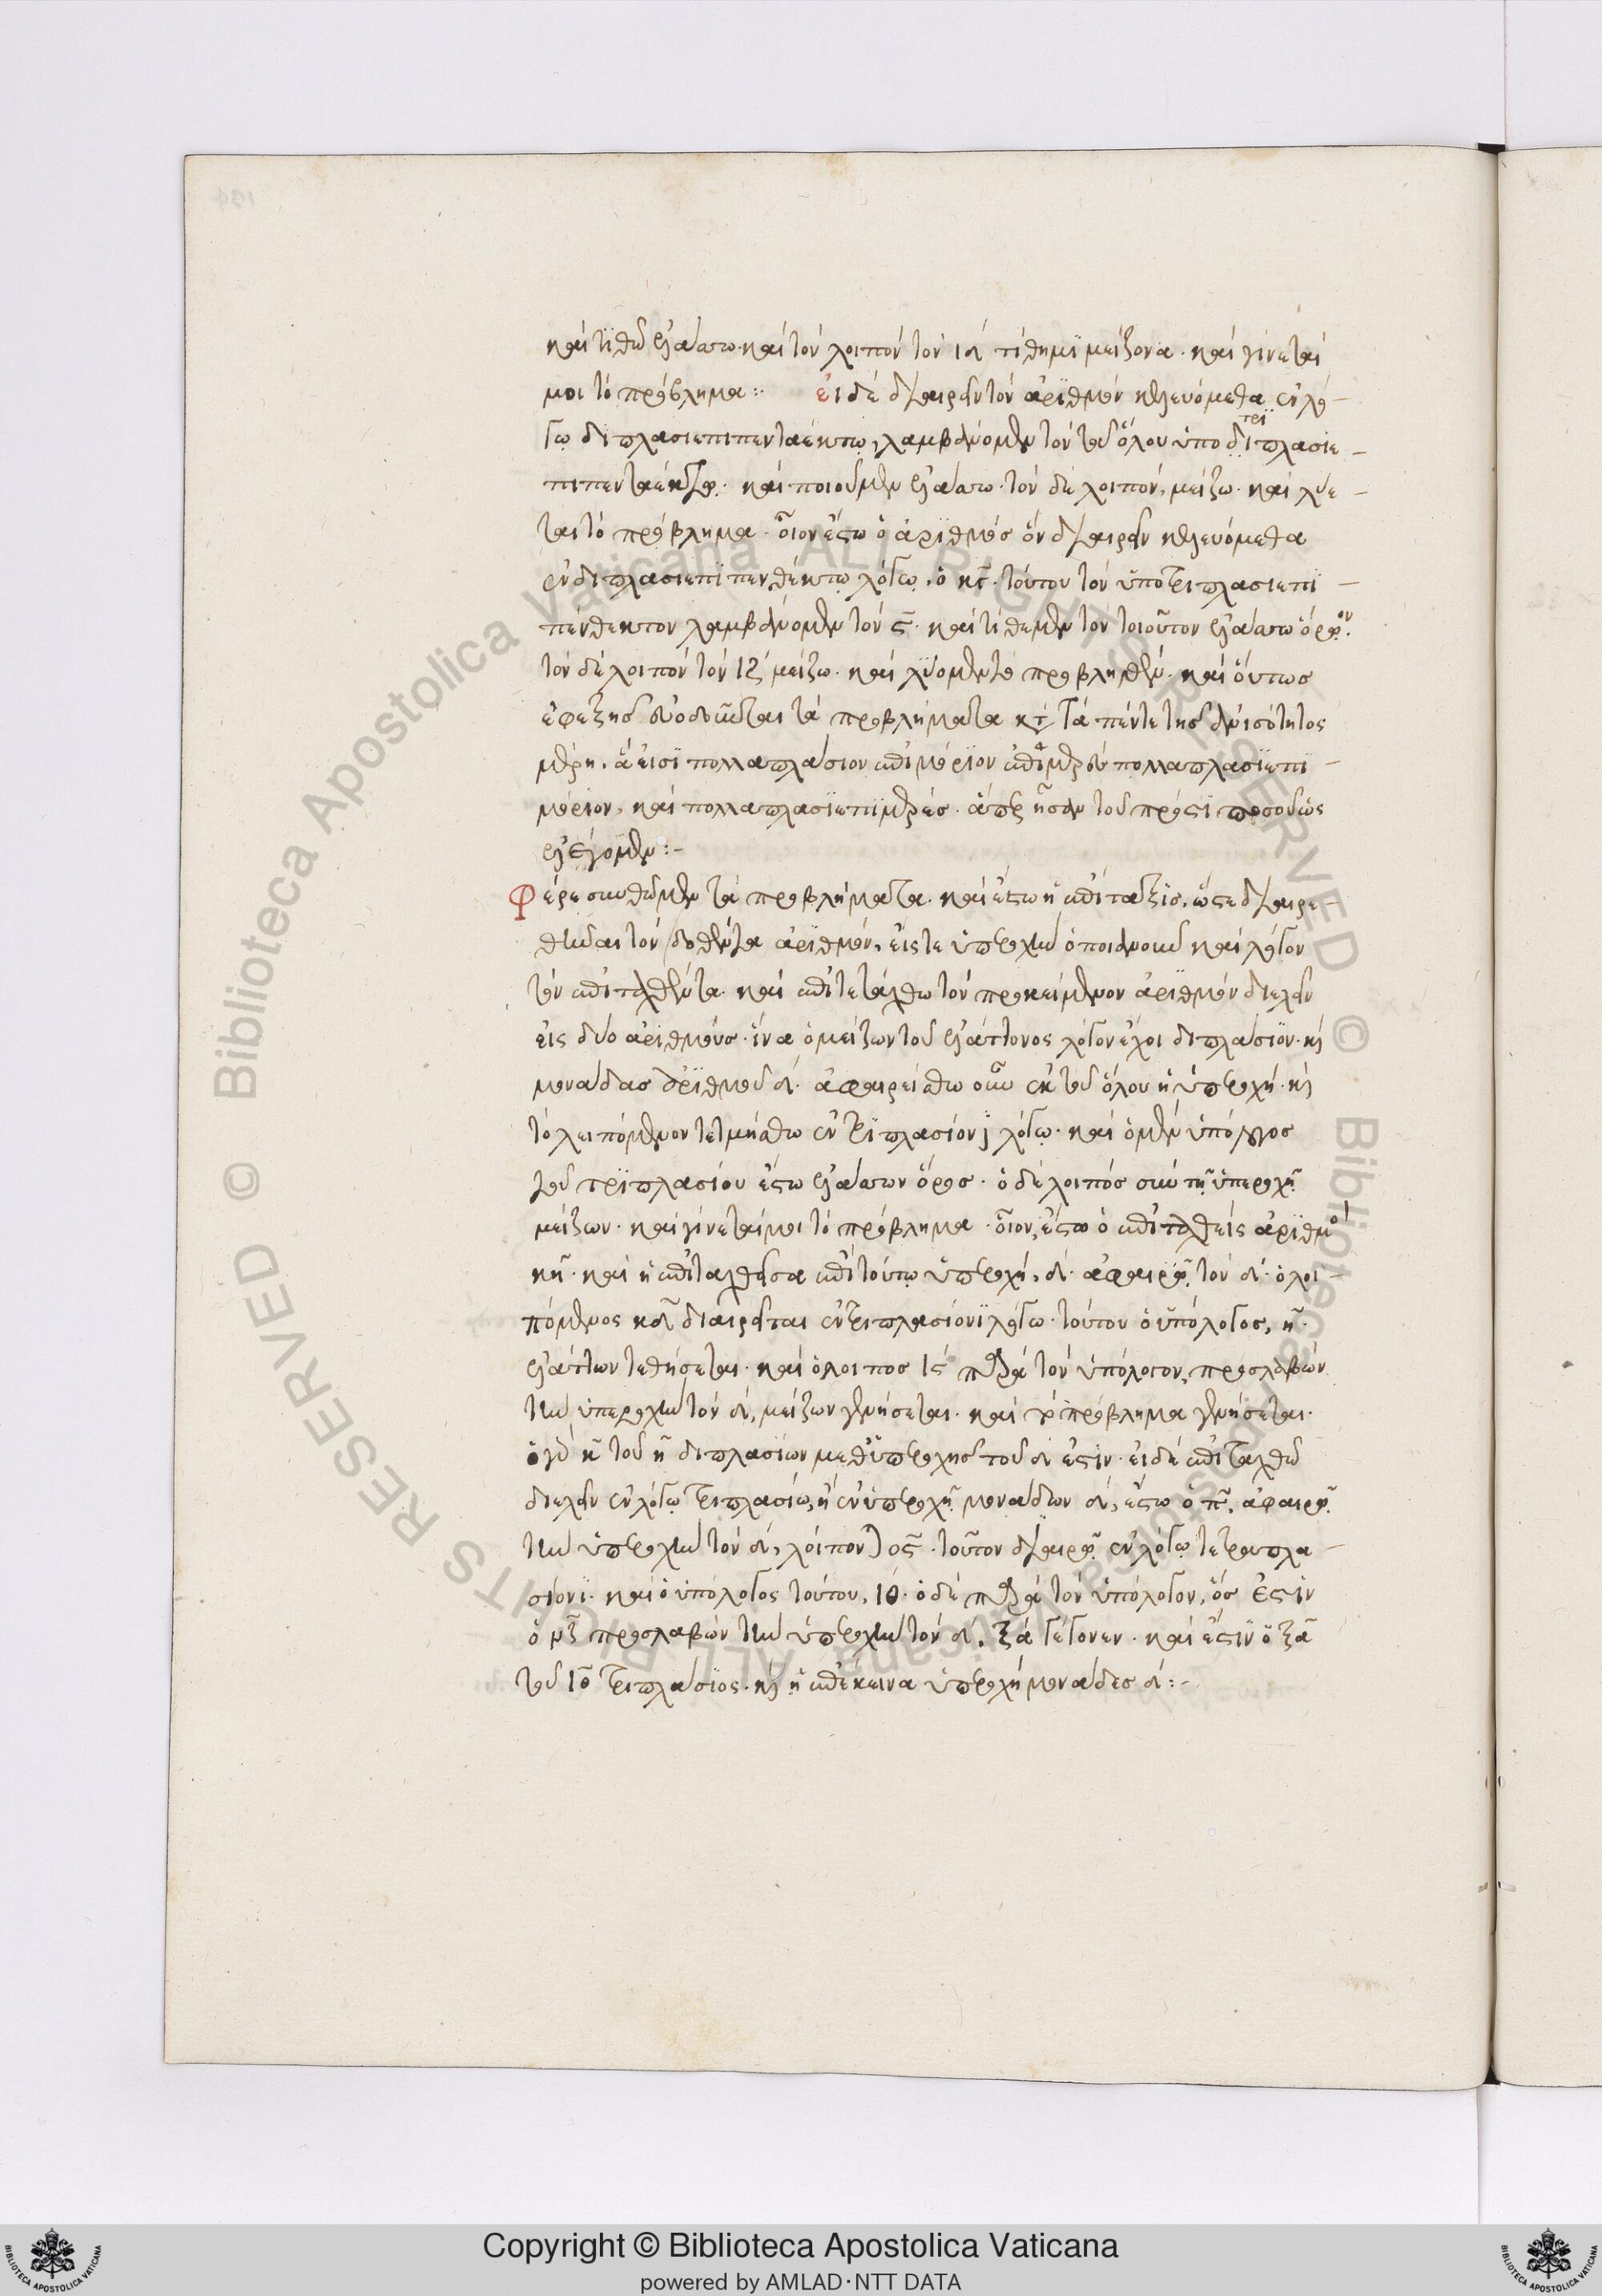 καὶ τιθῶ ἐλάσσω. καὶ τὸν λοιπὸν τὸν ιδ τίθημι μείζονα. καὶ γίνεταί
μοι τὸ πρόβλημα:· εἰ δὲ διαιρεῖν τὸν ἀριθμὸν κελευόμεθα ἐν λό–
γω διπλασιεπιπενταέκτω, λαμβάνομεν τὸν τοῦ ὅλου ὑπο διπλασιε–
τρι
πιπενταέκτω. καὶ ποιοῦμεν ἐλάσσω. τὸν δὲ λοιπόν, μείζω. καὶ λύε–
ται τὸ πρόβλημα. οἷον ἔστω ὁ ἀριθμὸς ὃν διαιρεῖν κελευόμεθα
ἐν διπλασιεπιπενθέκτω λόγω, ὁ κγ. τούτου τὸν ὑποτριπλασιεπι–
πένθεκτον λαμβάνομεν τὸν ς. καὶ τίθεμεν τὸν τοιοῦτον ἐλάσσω ὅρον.
τὸν δὲ λοιπὸν τὸν ιζ μείζω. καὶ λύομεν τὸ προβληθέν. καὶ οὕτως
ἐφεξῆς συοδεῦεται τὰ προβλήματα κατὰ τὰ πέντε τῆς ἀνισότητος
μέρη. ἅ εἰσι πολλαπλάσιον ἐπιμόριον ἐπιμερὲς πολλαπλασιεπι–
μόριον, καὶ πολλαπλασιεπιμερές. ἅπερ ἦσαν τοῦ πρός τι ποσοῦ ὡς
ἐλέγομεν:–
Φέρε συνθῶμεν τὰ προβλήματα. καὶ ἔστω ἡ ἐπίταξις, ὥστε διαιρε–
θῆναι τὸν δοθέντα ἀριθμόν, εἴς τε ὑπεροχὴν ὁποιανοῦν καὶ λόγον
τὸν ἐπιταχθέντα. καὶ ἐπιτετάχθω τὸν προκείμενον ἀριθμὸν διελεῖν
εἰς δύο ἀριθμούς. ἵνα ὁ μείζων τοῦ ἐλάττονος λόγον ἔχοι διπλάσιον. καὶ
μονάδας ἀριθμοῦ δ. ἀφαιρείσθω οὖν ἐκ τοῦ ὅλου ἡ ὑπεροχή. καὶ
τὸ λειπόμενον τετμήσθω ἐν τριπλασίονι λόγω. καὶ ὁ μὲν ὑπόλογος
τοῦ τριπλασίου ἔστω ἐλάσσων ὅρος. ὁ δὲ λοιπὸς σὺν τῆ ὑπεροχῆ
μείζων. καὶ γίνεταί μοι τὸ πρόβλημα. οἷον, ἔστω ὁ ἐπιταχθεὶς ἀριθμὸς
κη. καὶ ἡ ἐπιταχθεῖσα ἐπὶ τούτω ὑπεροχή, δ. ἀφαιρῶ τὸν δ. ὁ λει–
πόμενος κδ διαιρεῖται ἐν τριπλασίονι λόγω. τούτου ὁ ὑπόλογος, ς.
ἐλάττων τεθήσεται. καὶ ὁ λοιπὸς ις παρὰ τὸν ὑπόλογον, προσλαβὼν
τὴν ὑπεροχὴν τὸν δ, μείζων γενήσεται. καὶ τὸ πρόβλημα γενήσεται.
ὁ γὰρ κ τοῦ η διπλασίων μεθ' ὑπεροχῆς τοῦ δ ἐστιν. εἰ δὲ ἐπιταχθῶ
διελεῖν ἐν λόγω τριπλασίω, ἢ ἐν ὑπεροχῆ μονάδων δ, ἔστω ὁ π, ἀφαιρῶ
τὴν ὑπεροχὴν τὸν δ, λοιπὸν ος. τοῦτον διαιρῶ ἐν λόγω τετραπλα–
σίονι. καὶ ὁ ὑπόλογος τούτου, ιθ. ὁ δὲ παρὰ τὸν ὑπόλογον, ὅς ἐστιν
ὁ νζ προσλαβὼν τὴν ὑπεροχὴν τὸν δ, ξα γέγονεν. καὶ ἔστιν ὁ ξα
τοῦ ιθ τριπλάσιος. καὶ ἡ ἐπέκεινα ὑπεροχὴ μονάδες δ:–
© Biblioteca Apostolica Vaticana ALL RIGHTS RESERVED © Biblioteca Apostolica Vaticana ALL RIGHTS RESERVED
Copyright © Biblioteca Apostolica Vaticana
powered by AMLAD·NTT DATA
BIBLIOTECA APOSTOLICA VATICANA
BIBLIOTECA APOSTOLICA VATICANA